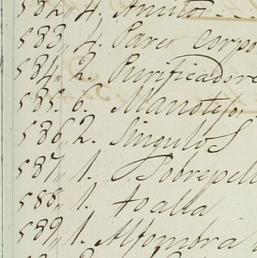 582,, 4. Amitos . . .
583,, 4. Pares corpo
584,, 2. Purificadore
585,, 6. Manotejos
586,, 2. Singulos
587,, 1. Sobrepelli
588,, 1. toalla
589,, 1. Alfombra